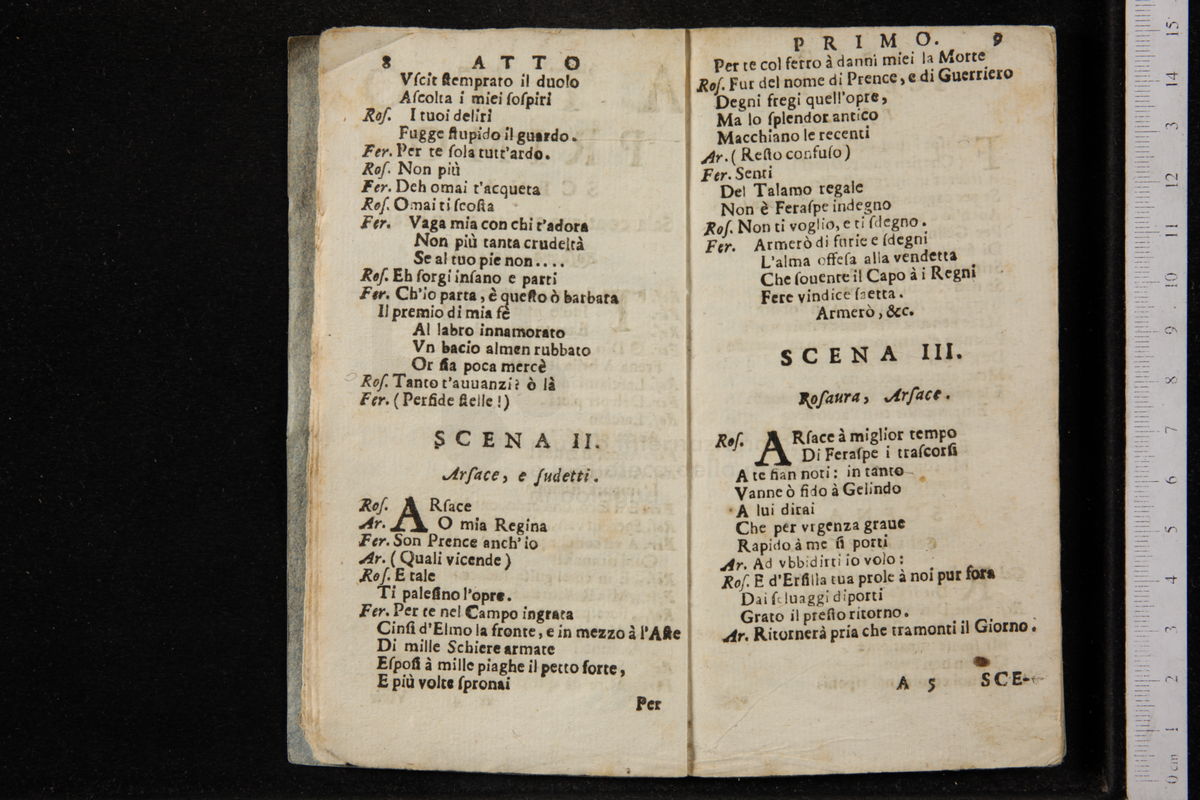 8 ATTO
Vſcit ſtemprato il duolo
Aſcolta i miei ſoſpiri
Roſ. I tuoi deliri
Fugge ſtupido il guardo.
Fer. Per te ſola tutt'ardo.
Roſ. Non più
Fer. Deh omai t'acqueta
Roſ. Omai ti ſcoſta
Fer. Vaga mia con chi t'adora
Non più tanta crudeltà
Se al tuo pie non....
Roſ. Eh ſorgi inſano e parti
Fer. Ch'io parta, è queſto ò barbara
Il premio di mia fè
Al labro innamorato
Vn bacio almen rubbato
Or ſia poca mercè
Roſ. Tanto t'auuanzi? ò là
Fer. (Perfide ſtelle!)
SCENA II.
Arſace, e ſudetti.
Roſ. ARſace
Ar. O mia Regina
Fer. Son Prence anch'io
Ar. (Quali vicende)
Roſ. E tale
Ti paleſino l'opre.
Fer. Per te nel Campo ingrata
Cinſi d'Elmo la fronte, e in mezzo à l'Aſte
Di mille Schiere armate
Eſpoſi à mille piaghe il petto forte,
E più volte ſpronai
Per
PRIMO. 9
Per te col ferro à danni miei la Morte
Roſ. Fur del nome di Prence, e di Guerriero
Degni fregi quell'opre,
Ma lo ſplendor antico
Macchiano le recenti
Ar. (Reſto confuſo)
Fer. Senti
Del Talamo regale
Non è Feraſpe indegno
Roſ. Non ti voglio, e ti ſdegno.
Fer. Armerò di furie e ſdegni
L'alma offeſa alla vendetta
Che ſouente il Capo à i Regni
Fere vindice ſaetta.
Armerò, &c.
SCENA III.
Roſaura, Arſace.
Roſ. ARſace à miglior tempo
Di Feraſpe i traſcorſi
A te ſian noti: in tanto
Vanne ò fido à Gelindo
A lui dirai
Che per vrgenza graue
Rapido à me ſi porti
Ar. Ad vbbidirti io volo:
Roſ. E d'Erſilla tua prole à noi pur fora
Dai ſeluaggi diporti
Grato il preſto ritorno.
Ar. Ritornerà pria che tramonti il Giorno.
A 5 SCE-
0 cm 1 2 3 4 5 6 7 8 9 10 11 12 13 14 15